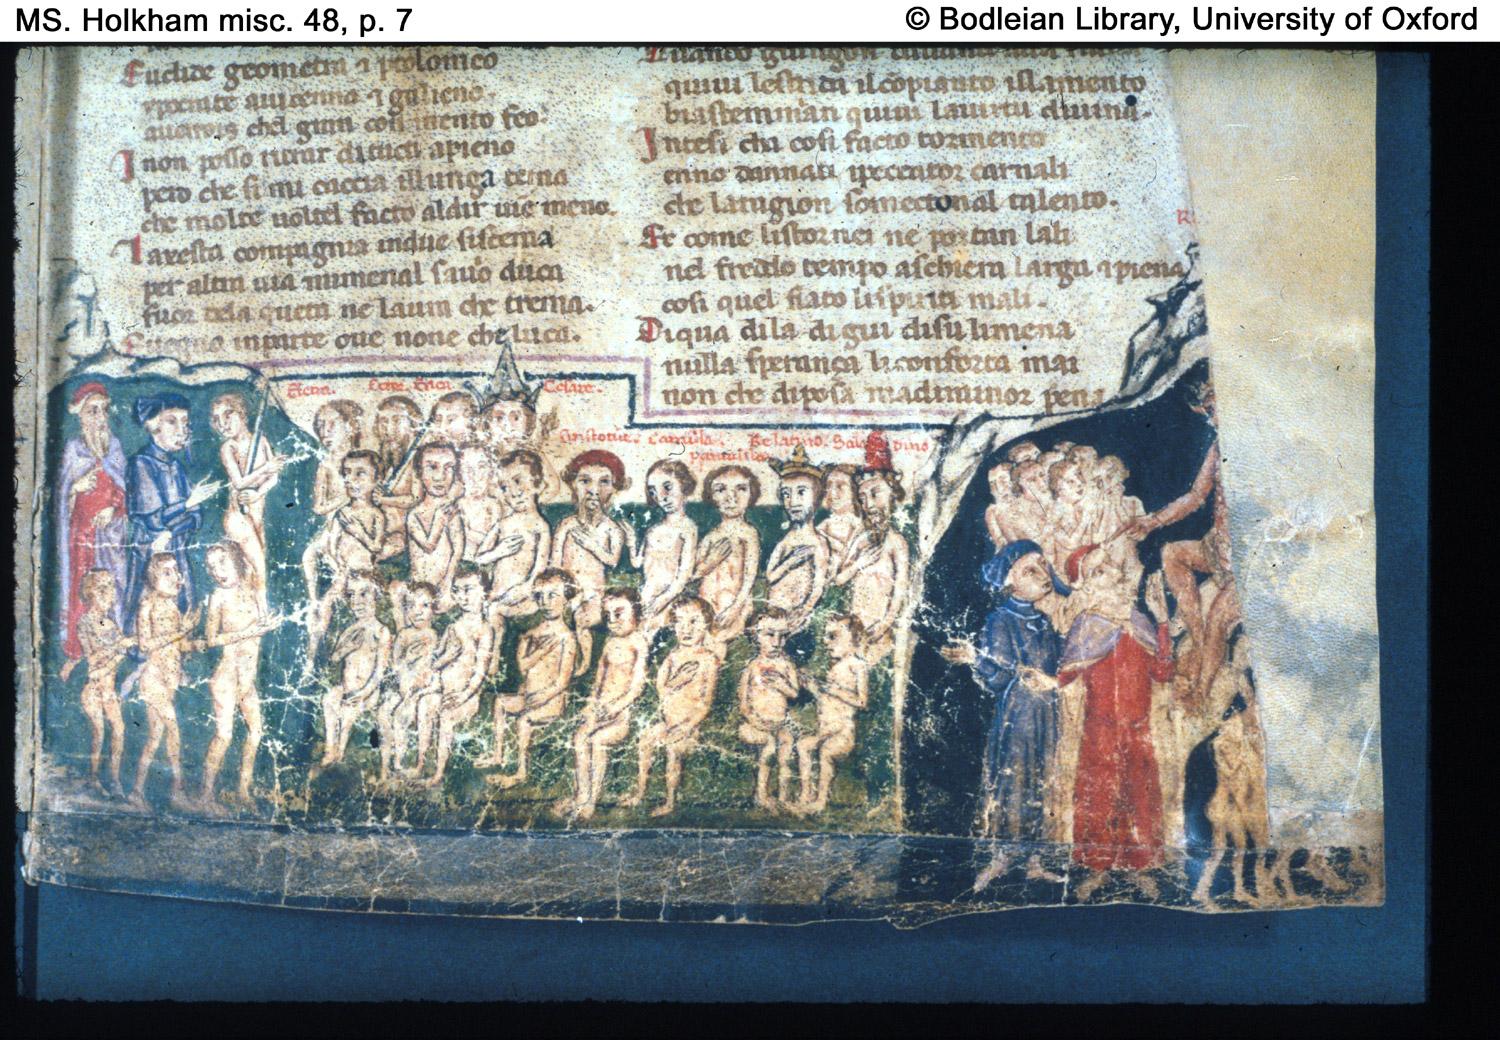 MS. Holkham misc. 48, p. 7
© Bodleian Library, University of Oxford
Euclide geometra ⁊ ptolomeo
ypocrate auicenna ⁊ galieno
auerois chel gran comento feo.
I non posso ritrar di tucti apieno
pero che si mi caccia illungo tema
che molte uolte al facto aldir uie meno.
La sesta compagnia indue si scema
per altra uia mi mena il sauio duca
fuor dela queta ne laura che trema.
inparte oue none che luca.
Quando giungon dauanti ala ruina
quiui le strida il conpianto illamento
biastemman quiui la uirtu diuina.
Intesi cha cosi facto tormento
enno dannati ipeccator carnali
che la ragion somecton al talento.
Et come li stornei ne portan lali
nel freddo tempo aschiera larga ⁊ piena
cosi quel fiato li spiriti mali.
Di qua di la di giu di su li mena
nulla sperança li conforta mai
non che di posa ma di minor pena
Ector. Enea.
Cesare.
Camilla. Re latino. Saladino